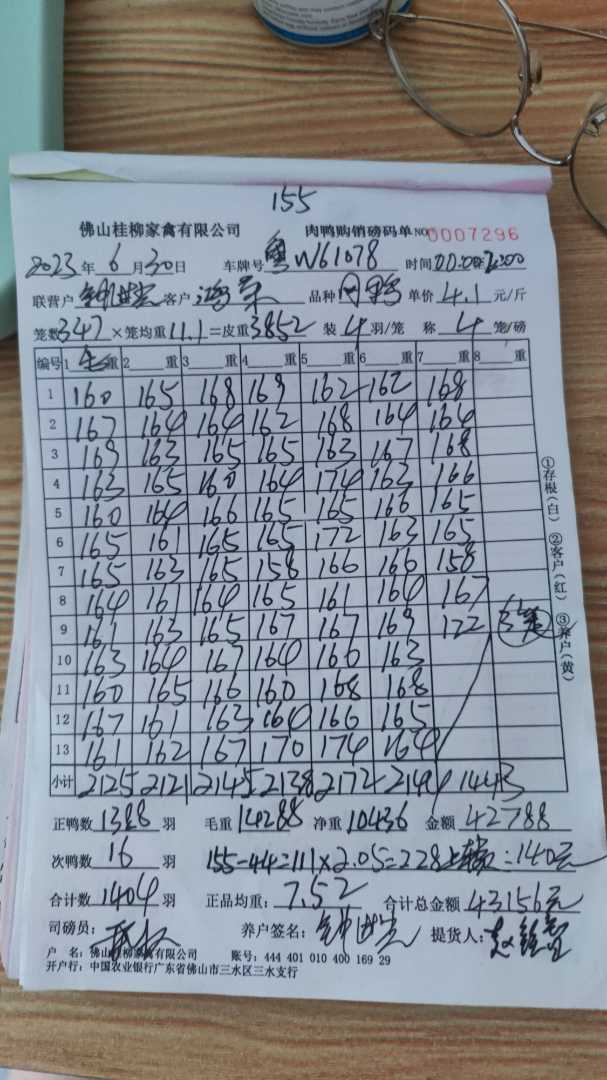 155
佛山桂柳家禽有限公司 肉鸭购销磅码单 NO 0007296
2023年6月30日 车牌号 粤W61078 时间
联营户 客户 鸿 品种 单价 4.1 元/斤
笼数 347 ×笼均重 11.1 =皮重 3852 装 4 羽/笼 称 4 笼/磅
编号 1 毛重 2 重 3 重 4 重 5 重 6 重 7 重 8 重
1 160 165 168 169 162 162 168
2 167 164 164 162 168 164 164
3 169 163 165 165 163 167 168
4 163 165 160 164 174 163 166
5 160 164 166 165 165 166 165
6 165 161 165 165 172 163 165
7 165 163 165 158 166 166 158
8 164 161 164 165 161 164 167
9 161 163 165 167 167 169 122 3笼
10 163 164 167 164 160 163
11 160 165 166 160 168 168
12 167 161 163 164 166 165
13 161 162 167 170 174 164
小计 2125 2121 2145 2138 2172 2144 1443
正鸭数 1388 羽 毛重 14288 净重 10436 金额 42788
次鸭数 16 羽 155-44=111×2.05=228 =140元
合计数 1404 羽 正品均重: 7.52 合计总金额 43156元
司磅员: 养户签名: 提货人:
户 名: 佛山桂柳家禽有限公司 账号: 444 401 010 400 169 29
开户行: 中国农业银行广东省佛山市三水区三水支行
①存根(白) ②客户(红) ③养户(黄)